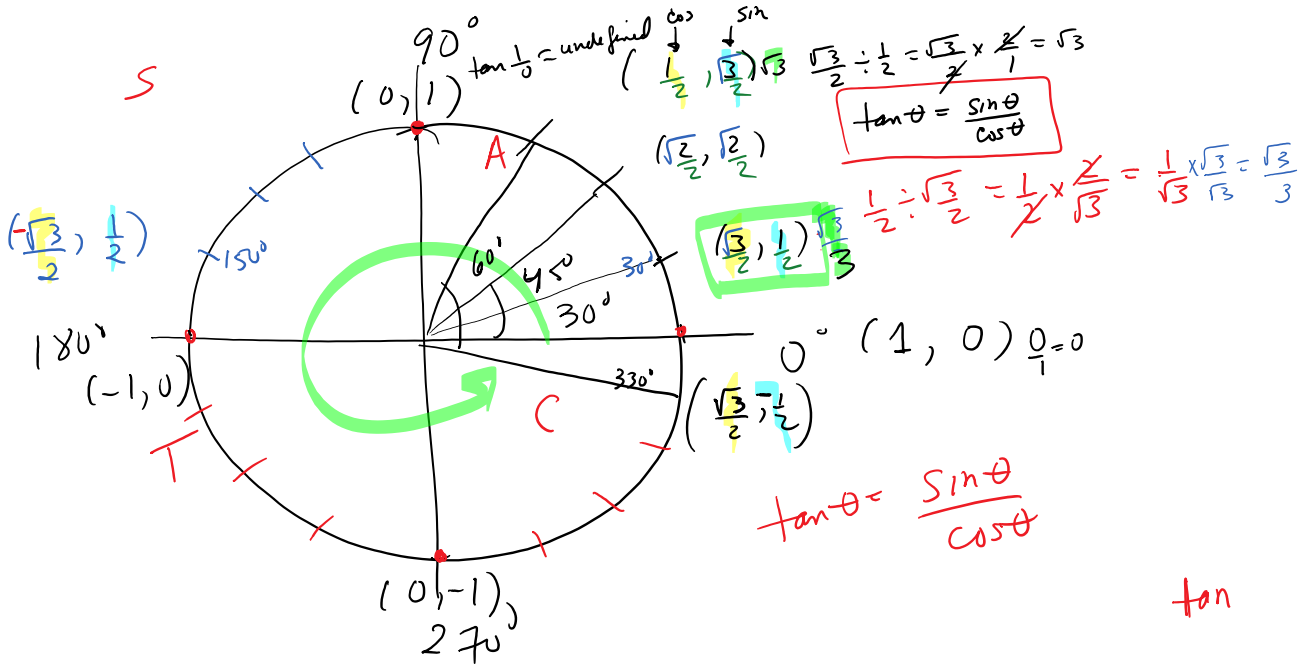 90°
tan 1/0 = undefined
cos
sin
(1/2, √3/2) √3
√3/2 ÷ 1/2 = √3/2 × 2/1 = √3
S
(0, 1)
tanθ = sinθ/cosθ
A
(√2/2, √2/2)
1/2 ÷ √3/2 = 1/2 × 2/√3 = 1/√3 × √3/√3 = √3/3
(-√3/2, 1/2)
150°
60°
45°
30°
30°
(√3/2, 1/2) √3/3
180°
(-1, 0)
0° (1, 0) 0/1 = 0
330°
(√3/2, -1/2)
C
T
tanθ = sinθ/cosθ
(0, -1),
270°
tan